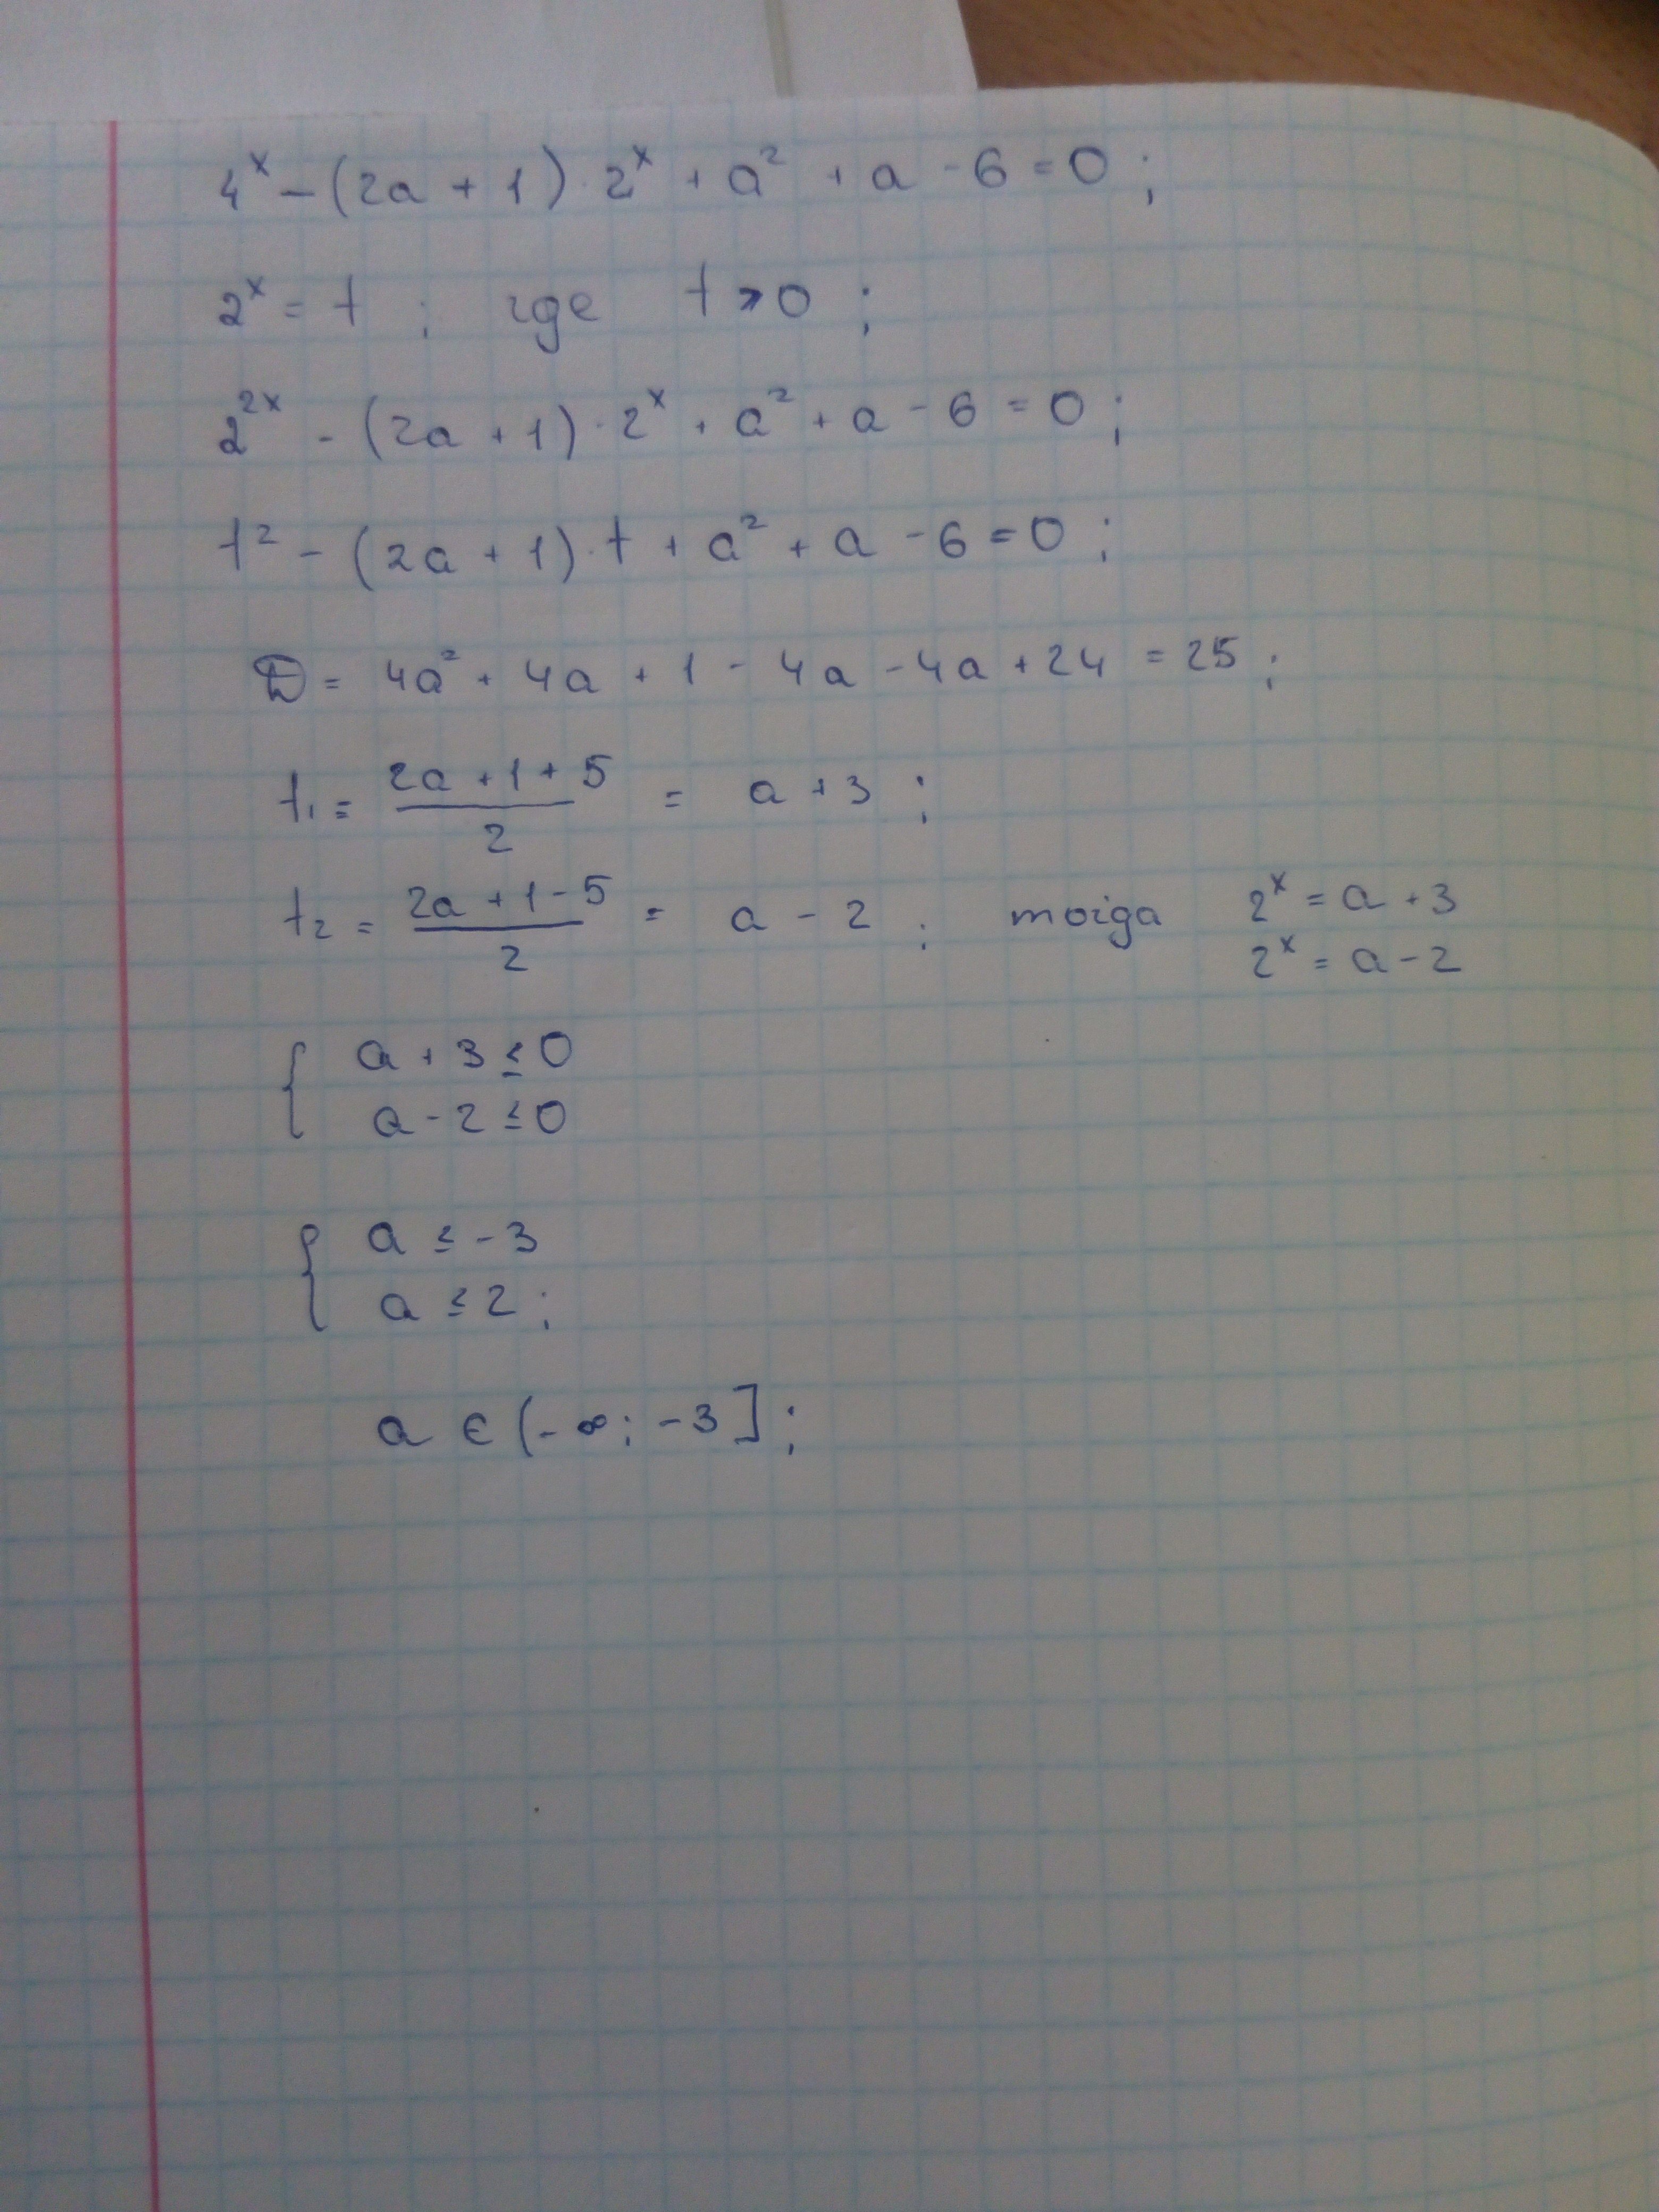 4ˣ – (2a + 1) · 2ˣ + a² + a - 6 = 0 ;
2ˣ = t ; где t > 0 ;
2²ˣ - (2a + 1) · 2ˣ + a² + a - 6 = 0 ;
t² - (2a + 1) · t + a² + a - 6 = 0 ;
D = 4a² + 4a + 1 - 4a - 4a + 24 = 25 ;
t₁ = (2a + 1 + 5)/2 = a + 3 ;
t₂ = (2a + 1 - 5)/2 = a - 2 ; тогда 2ˣ = a + 3
2ˣ = a - 2
{ a + 3 ≤ 0
a - 2 ≤ 0
{ a ≤ -3
a ≤ 2 ;
a ∈ (-∞; -3] ;